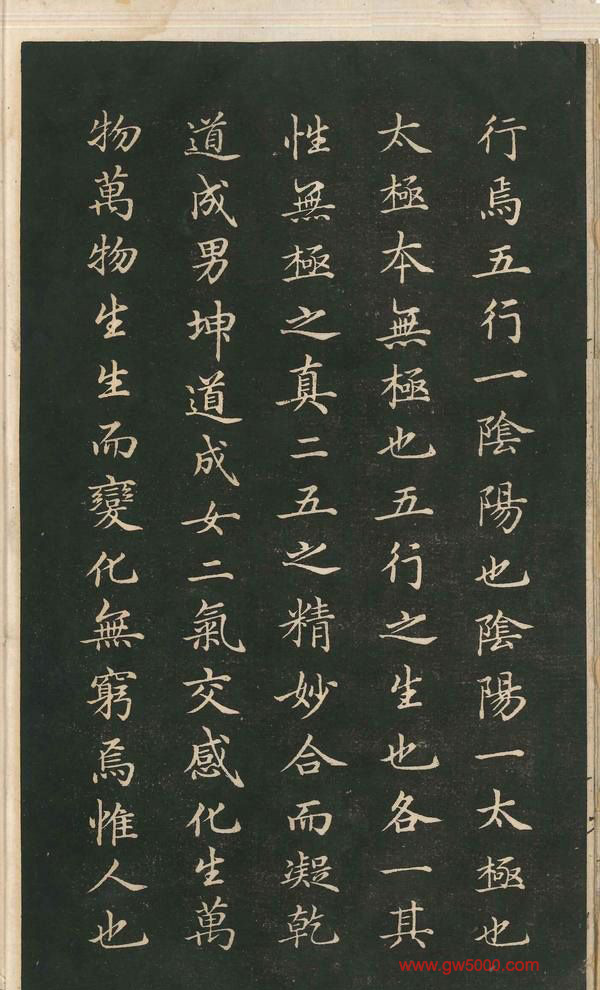 行焉五行一陰陽也陰陽一太極也
太極本無極也五行之生也各一其
性無極之真二五之精妙合而凝乾
道成男坤道成女二氣交感化生萬
物萬物生生而變化無窮焉惟人也
www.gw5000.com